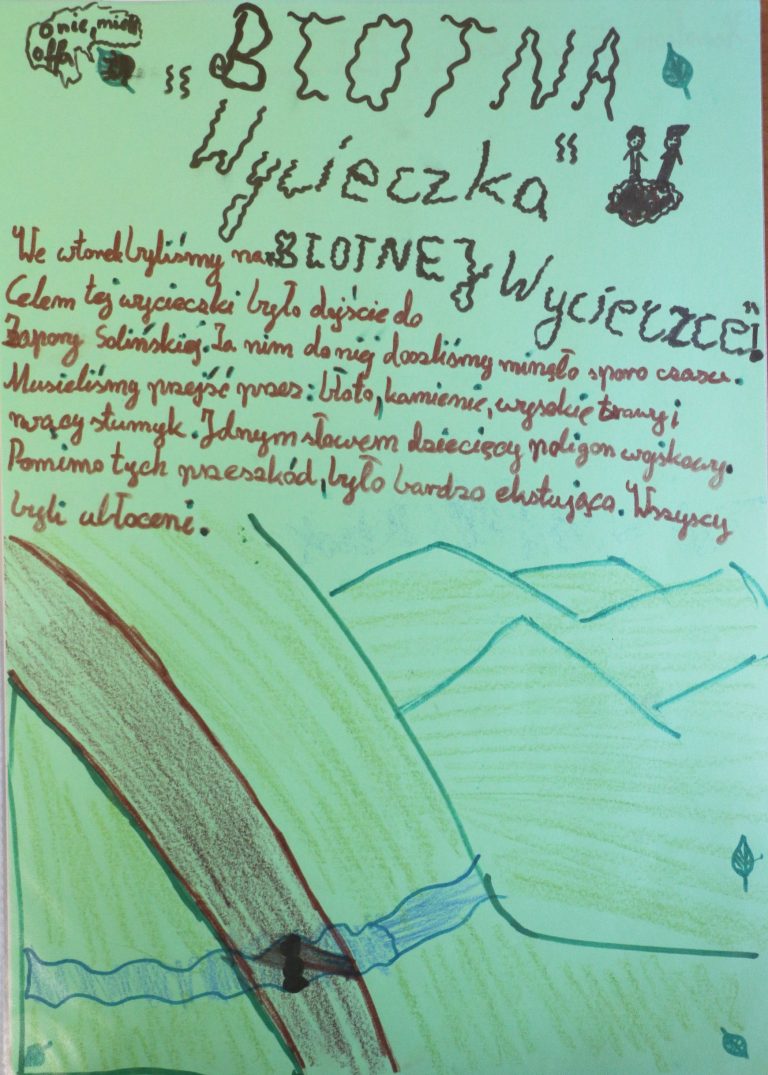 o nie,
offa
„BŁOTNA
Wycieczka"
We wtorek byliśmy na „BŁOTNEJ Wycierzce"!
Celem tej wycieczki było dojście do
Zapory Solińskiej. Za nim do niej doszliśmy mineło sporo czasu.
Musieliśmy przejść przez: błoto, kamienie, wysokie trawy i
rwący stumyk. Jednym słowem dziecięcy poligon wojskowy.
Pomimo tych przeszkód, było bardzo ekstująco. Wszyscy
byli ubłoceni.